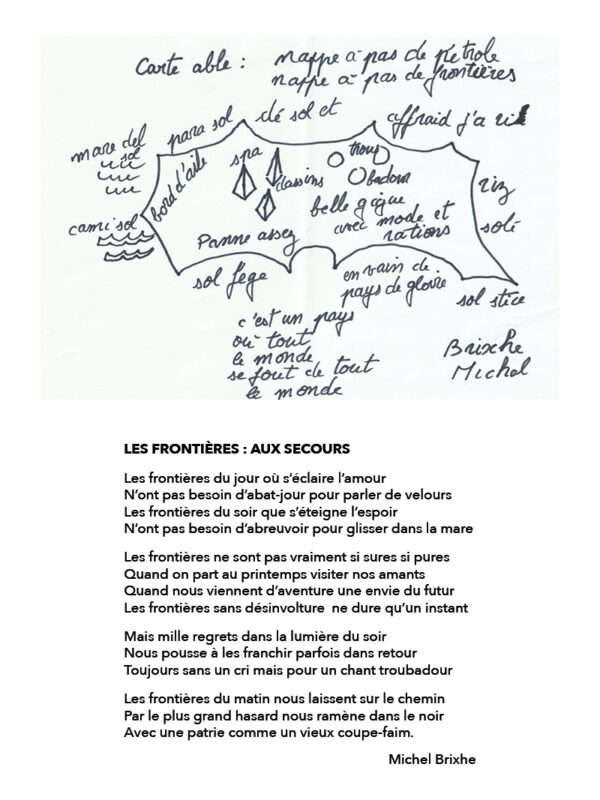 Carte able : nappe à pas de pétrole
nappe à pas de frontières
para sol
clé sol et
affraid j'a
mare del
sol
bord d'aile
spa
classins
trou
badour
riz
solé
cami sol
belle gigue
avec mode et
rations
Panne assez
sol fége
en vain de
pays de gloire
sol stice
c'est un pays
où tout
le monde
se fout de tout
le monde
Brixhe
Michel
LES FRONTIÈRES : AUX SECOURS
Les frontières du jour où s'éclaire l'amour
N'ont pas besoin d'abat-jour pour parler de velours
Les frontières du soir que s'éteigne l'espoir
N'ont pas besoin d'abreuvoir pour glisser dans la mare
Les frontières ne sont pas vraiment si sures si pures
Quand on part au printemps visiter nos amants
Quand nous viennent d'aventure une envie du futur
Les frontières sans désinvolture  ne dure qu'un instant
Mais mille regrets dans la lumière du soir
Nous pousse à les franchir parfois dans retour
Toujours sans un cri mais pour un chant troubadour
Les frontières du matin nous laissent sur le chemin
Par le plus grand hasard nous ramène dans le noir
Avec une patrie comme un vieux coupe-faim.
Michel Brixhe